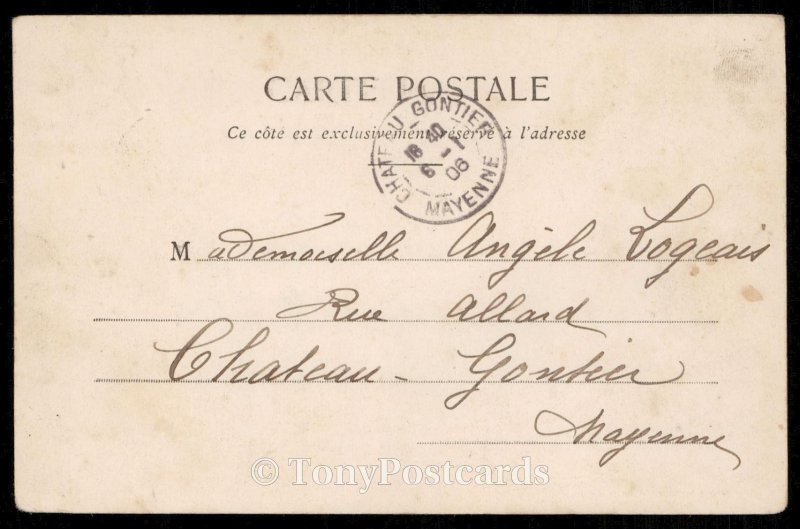 CARTE POSTALE
Ce côté est exclusivement réservé à l'adresse
CHATEAU GONTIER
18 40
6 - 1
06
MAYENNE
Mademoiselle Angèle Logeais
Rue Allard
Chateau-Gontier
Mayenne
© TonyPostcards